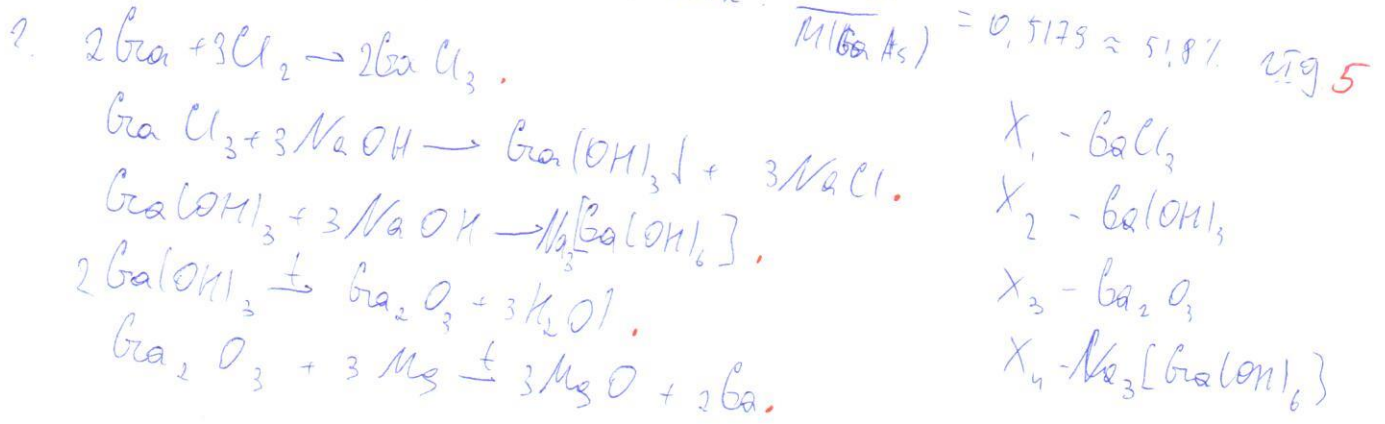 M(GaAs) = 0,5179 ≈ 51,8% 5
2. 2Ga + 3Cl₂ → 2GaCl₃.
GaCl₃ + 3NaOH → Ga(OH)₃↓ + 3NaCl.
Ga(OH)₃ + 3NaOH → Na₃[Ga(OH)₆].
2Ga(OH)₃ t→ Ga₂O₃ + 3H₂O↑.
Ga₂O₃ + 3Mg t→ 3MgO + 2Ga.
X₁ - GaCl₃
X₂ - Ga(OH)₃
X₃ - Ga₂O₃
X₄ - Na₃[Ga(OH)₆]